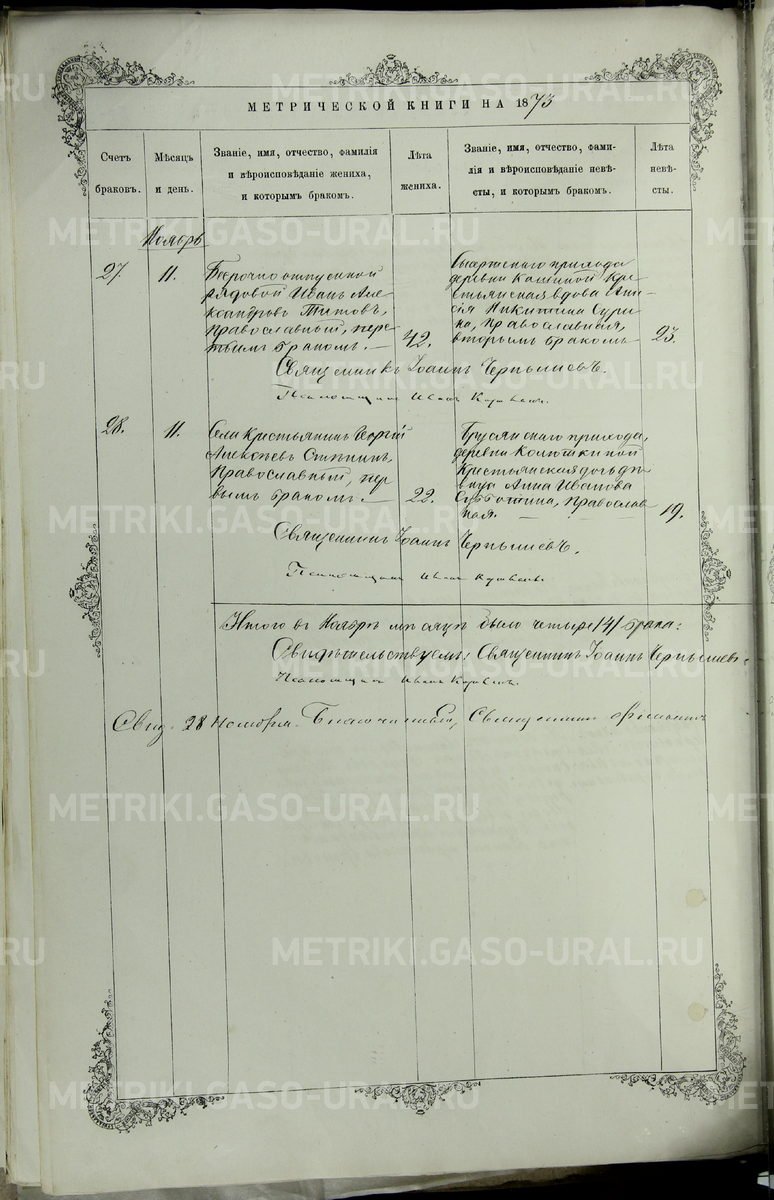 МЕТРИЧЕСКОЙ КНИГИ НА 1873
Счетъ браковъ.
Мѣсяцъ и день.
Званіе, имя, отчество, фамилія
и вѣроисповѣданіе жениха,
и которымъ бракомъ.
Лѣта жениха.
Званіе, имя, отчество, фами-
лія и вѣроисповѣданіе невѣ-
сты, и которымъ бракомъ.
Лѣта невѣ-
сты.
Ноябрь
27. 11.
Безрочно отпускной
рядовой Иванъ Але-
ксандровъ Титовъ,
православный, пер-
бракомъ. — 42.
прихода
деревни Кашиной Кре-
стьянская вдова Ани-
сія Никитина Сури-
на, Православная,
вторымъ бракомъ 23.
Священникъ Іоаннъ Чернышевъ.
Псаломщикъ Иванъ
28. 11.
Села Крестьянинъ Георгій
Алексѣевъ
Православный, пер-
вымъ бракомъ. — 22.
Бруснянскаго прихода,
деревни Колюткиной
Крестьянская дочь дѣ-
вица Анна Иванова
Субботина, Православ-
ная. — 19.
Священникъ Іоаннъ Чернышевъ.
Псаломщикъ Иванъ
Итого въ Ноябрѣ мѣсяцѣ было четыре /4/ брака:
Свидѣтельствуемъ: Священникъ Іоаннъ Чернышевъ.
Псаломщикъ Иванъ
Свид. 28 Ноября. Благочинный, Священникъ
METRIKI.GASO-URAL.RU